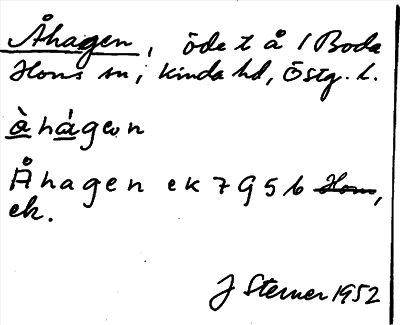 Åhagen, öde t å 1 Boda
Horns sn, Kinda hd, Östg. l.
å̀ h á̊ g ɷ n
Åhagen ek 7 G 5 b Horn,
ek.
J Sterner 1952